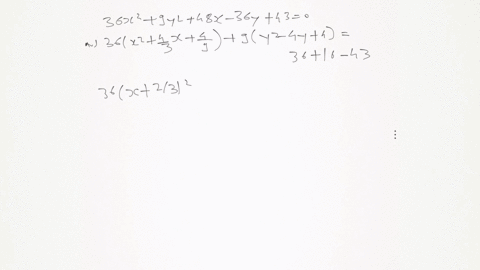 36x²+9y²+48x-36y+43=0
⇒) 36(x²+4/3x+4/9)+9(y²-4y+4)=
36+16-43
36(x+2/3)²